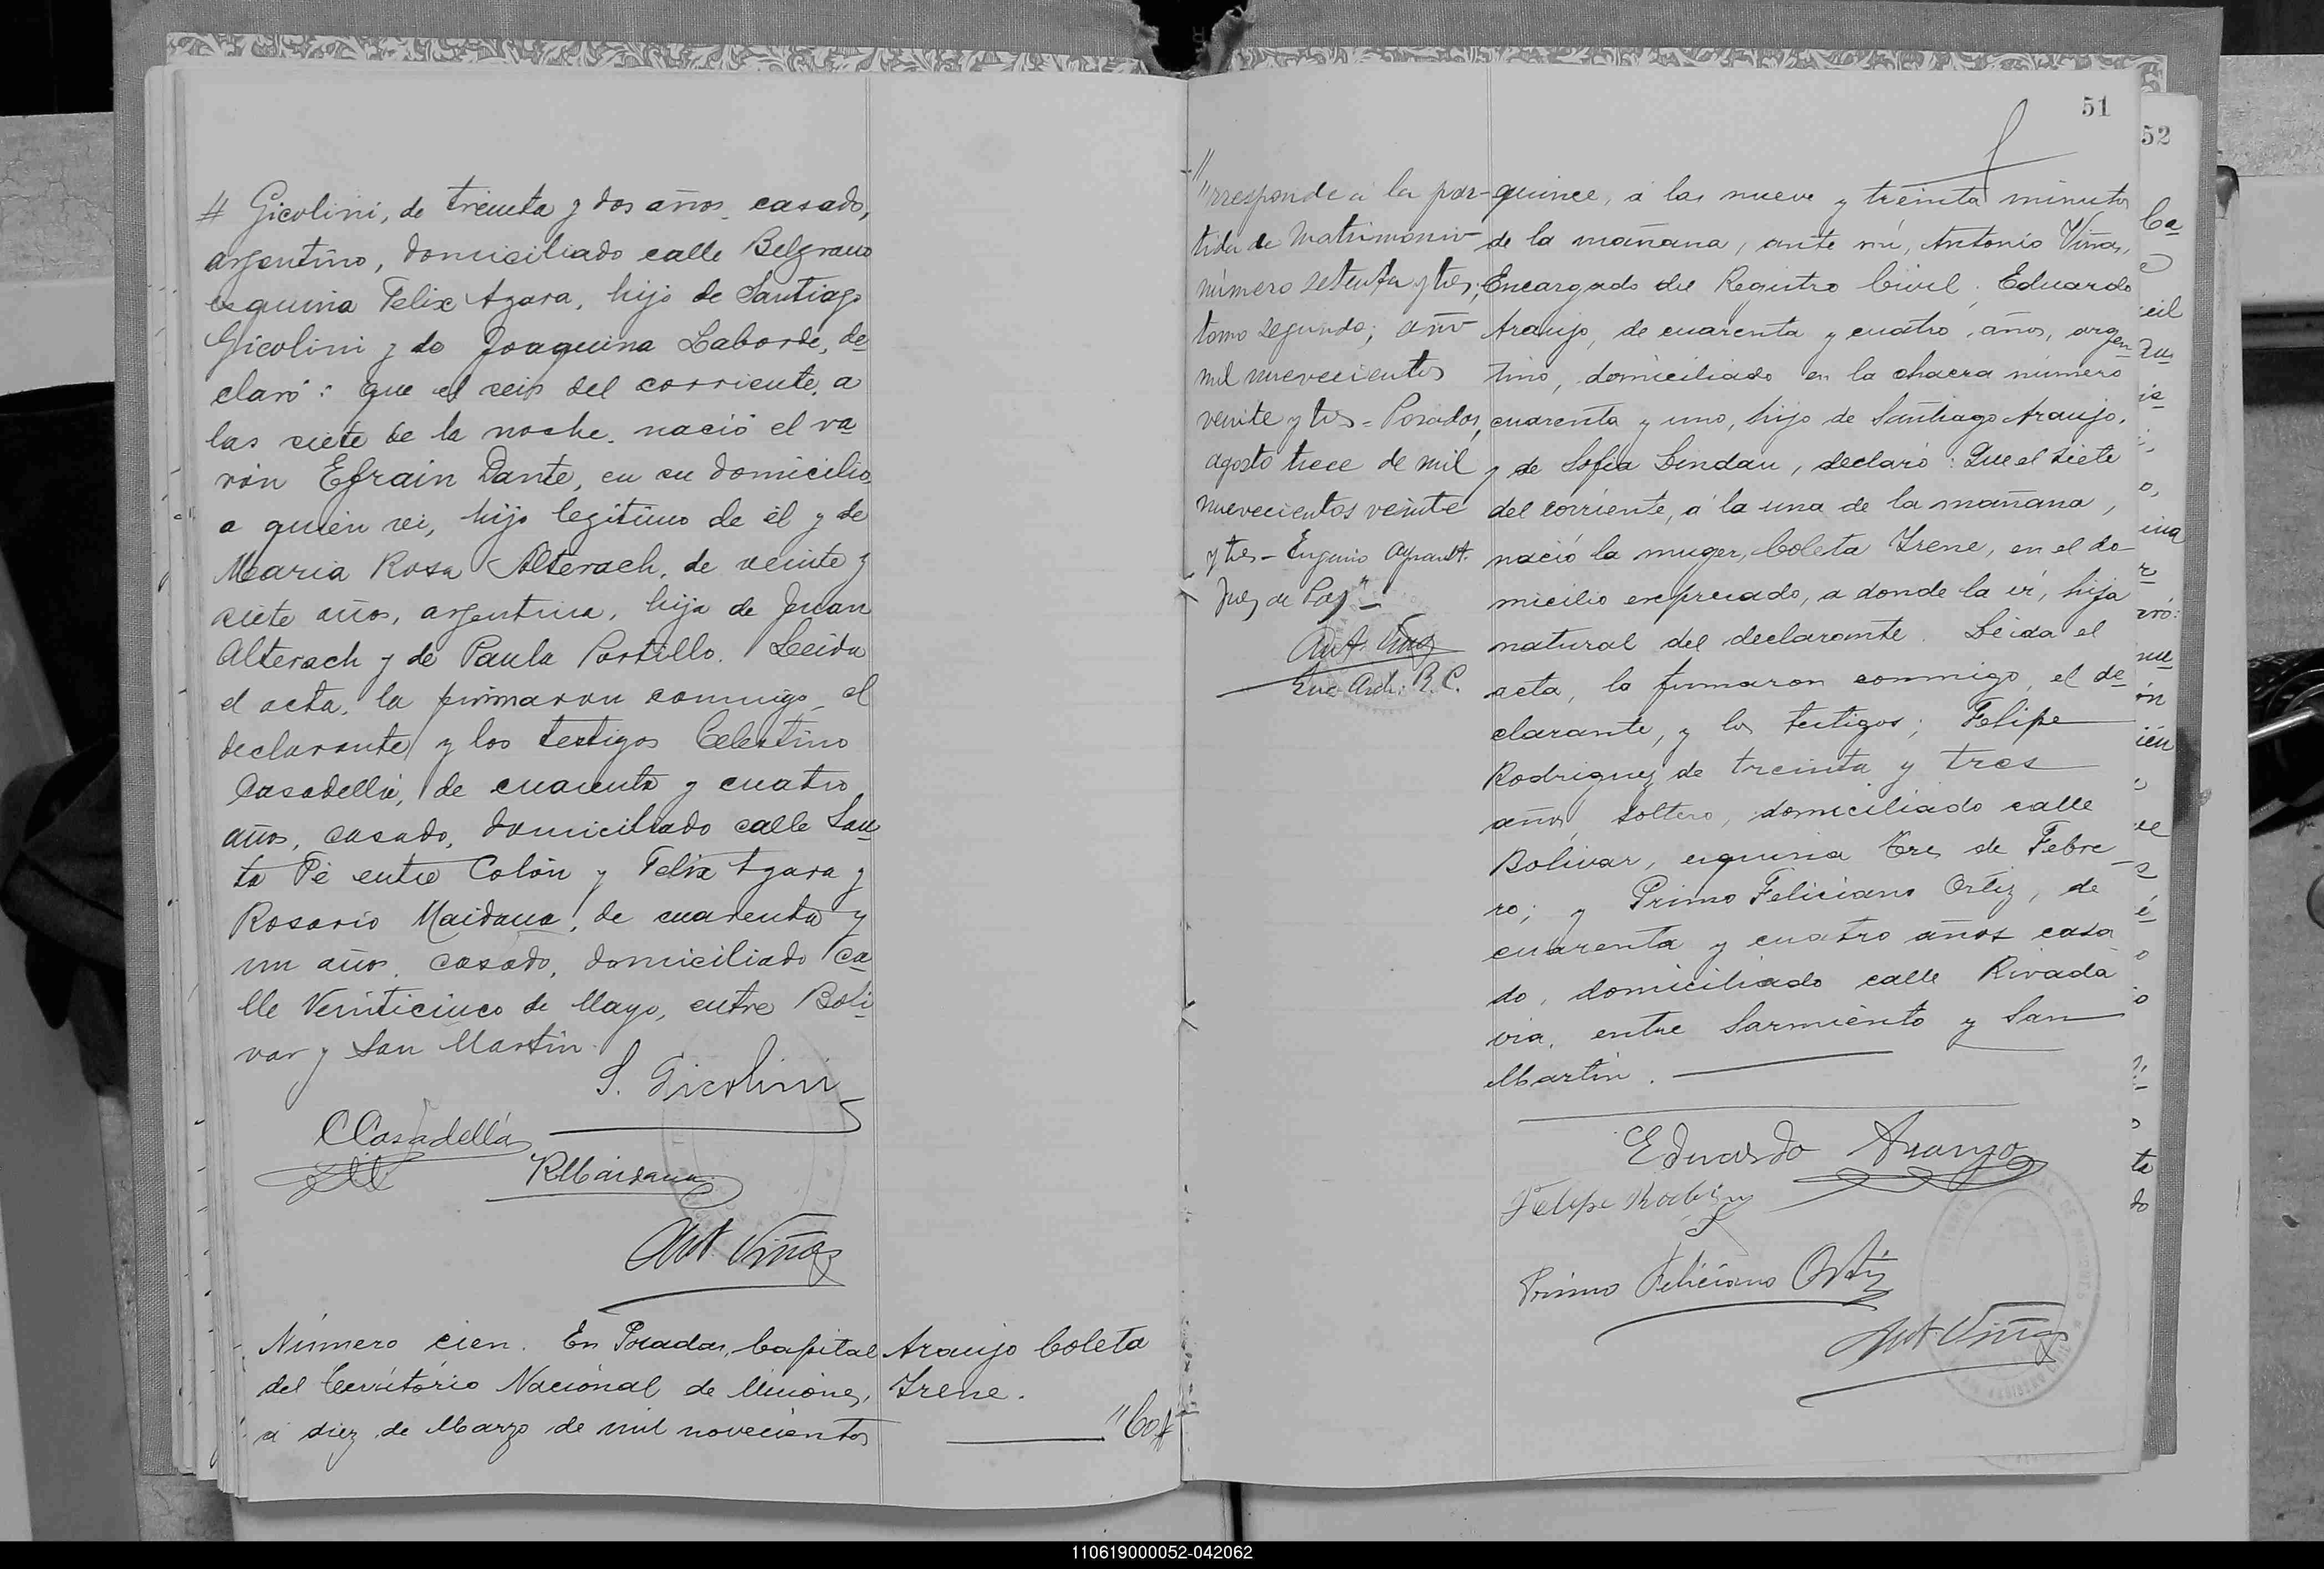 // Gicolini, de treinta y dos años, casado,
argentino, domiciliado calle Belgrano
esquina Felix Azara, hijo de Santiago
Gicolini y de Joaquina Laborde, de
claró: que el seis del corriente, a
las siete de la noche, nació el va
rón Efrain Dante, en su domicilio,
a quien vi, hijo legítimo de él y de
Maria Rosa Alterach, de veinte y
siete años, argentina, hija de Juan
Alterach y de Paula Portillo. Leida
el acta, la firmaron conmigo, el
declarante y los testigos Celestino
Casadellá, de cuarenta y cuatro
años, casado, domiciliado calle San
ta Fé entre Colón y Felix Azara y
Rosario Maidana, de cuarenta y
un años, casado, domiciliado ca
lle Veinticinco de Mayo, entre Boli
var y San Martin.
S. Gicolini
C Casadellá
R Maidana
Ant. Viñas
Número cien. En Posadas, Capital
del Territorio Nacional de Misiones,
a diez de Marzo de mil novecientos
Araujo Coleta
Irene.
"Co//
51
//rresponde a la par-
tida de Matrimonio
número setenta y tres,
tomo segundo; año
mil nuevecientos
veinte y tres = Posadas,
agosto trece de mil
nuevecientos veinte
y tres - Eugenio
Juez de Paz"
Ant. Viñas
Enc. Arch. R. C.
quince, á las nueve y treinta minutos
de la mañana, ante mí, Antonio Viñas,
Encargado del Registro Civil, Eduardo
Araujo, de cuarenta y cuatro años, argen
tino, domiciliado en la chacra número
cuarenta y uno, hijo de Santiago Araujo,
y de Sofia Lindau, declaró: Que el siete
del corriente, á la una de la mañana,
nació la muger, Coleta Irene, en el do-
micilio expresado, a donde la ví, hija
natural del declarante. Leida el
acta, la firmaron conmigo, el de
clarante, y los testigos; Felipe
Rodriguez de treinta y tres
años, soltero, domiciliado calle
Bolivar, esquina Tres de Febre
ro; y Primo Feliciano Ortiz, de
cuarenta y cuatro años casa
do, domiciliado calle Rivada
via, entre Sarmiento y San
Martin.
Eduardo Araujo
Felipe Rodriguez
Primo Feliciano Ortiz
Ant. Viñas
52
110619000052-042062